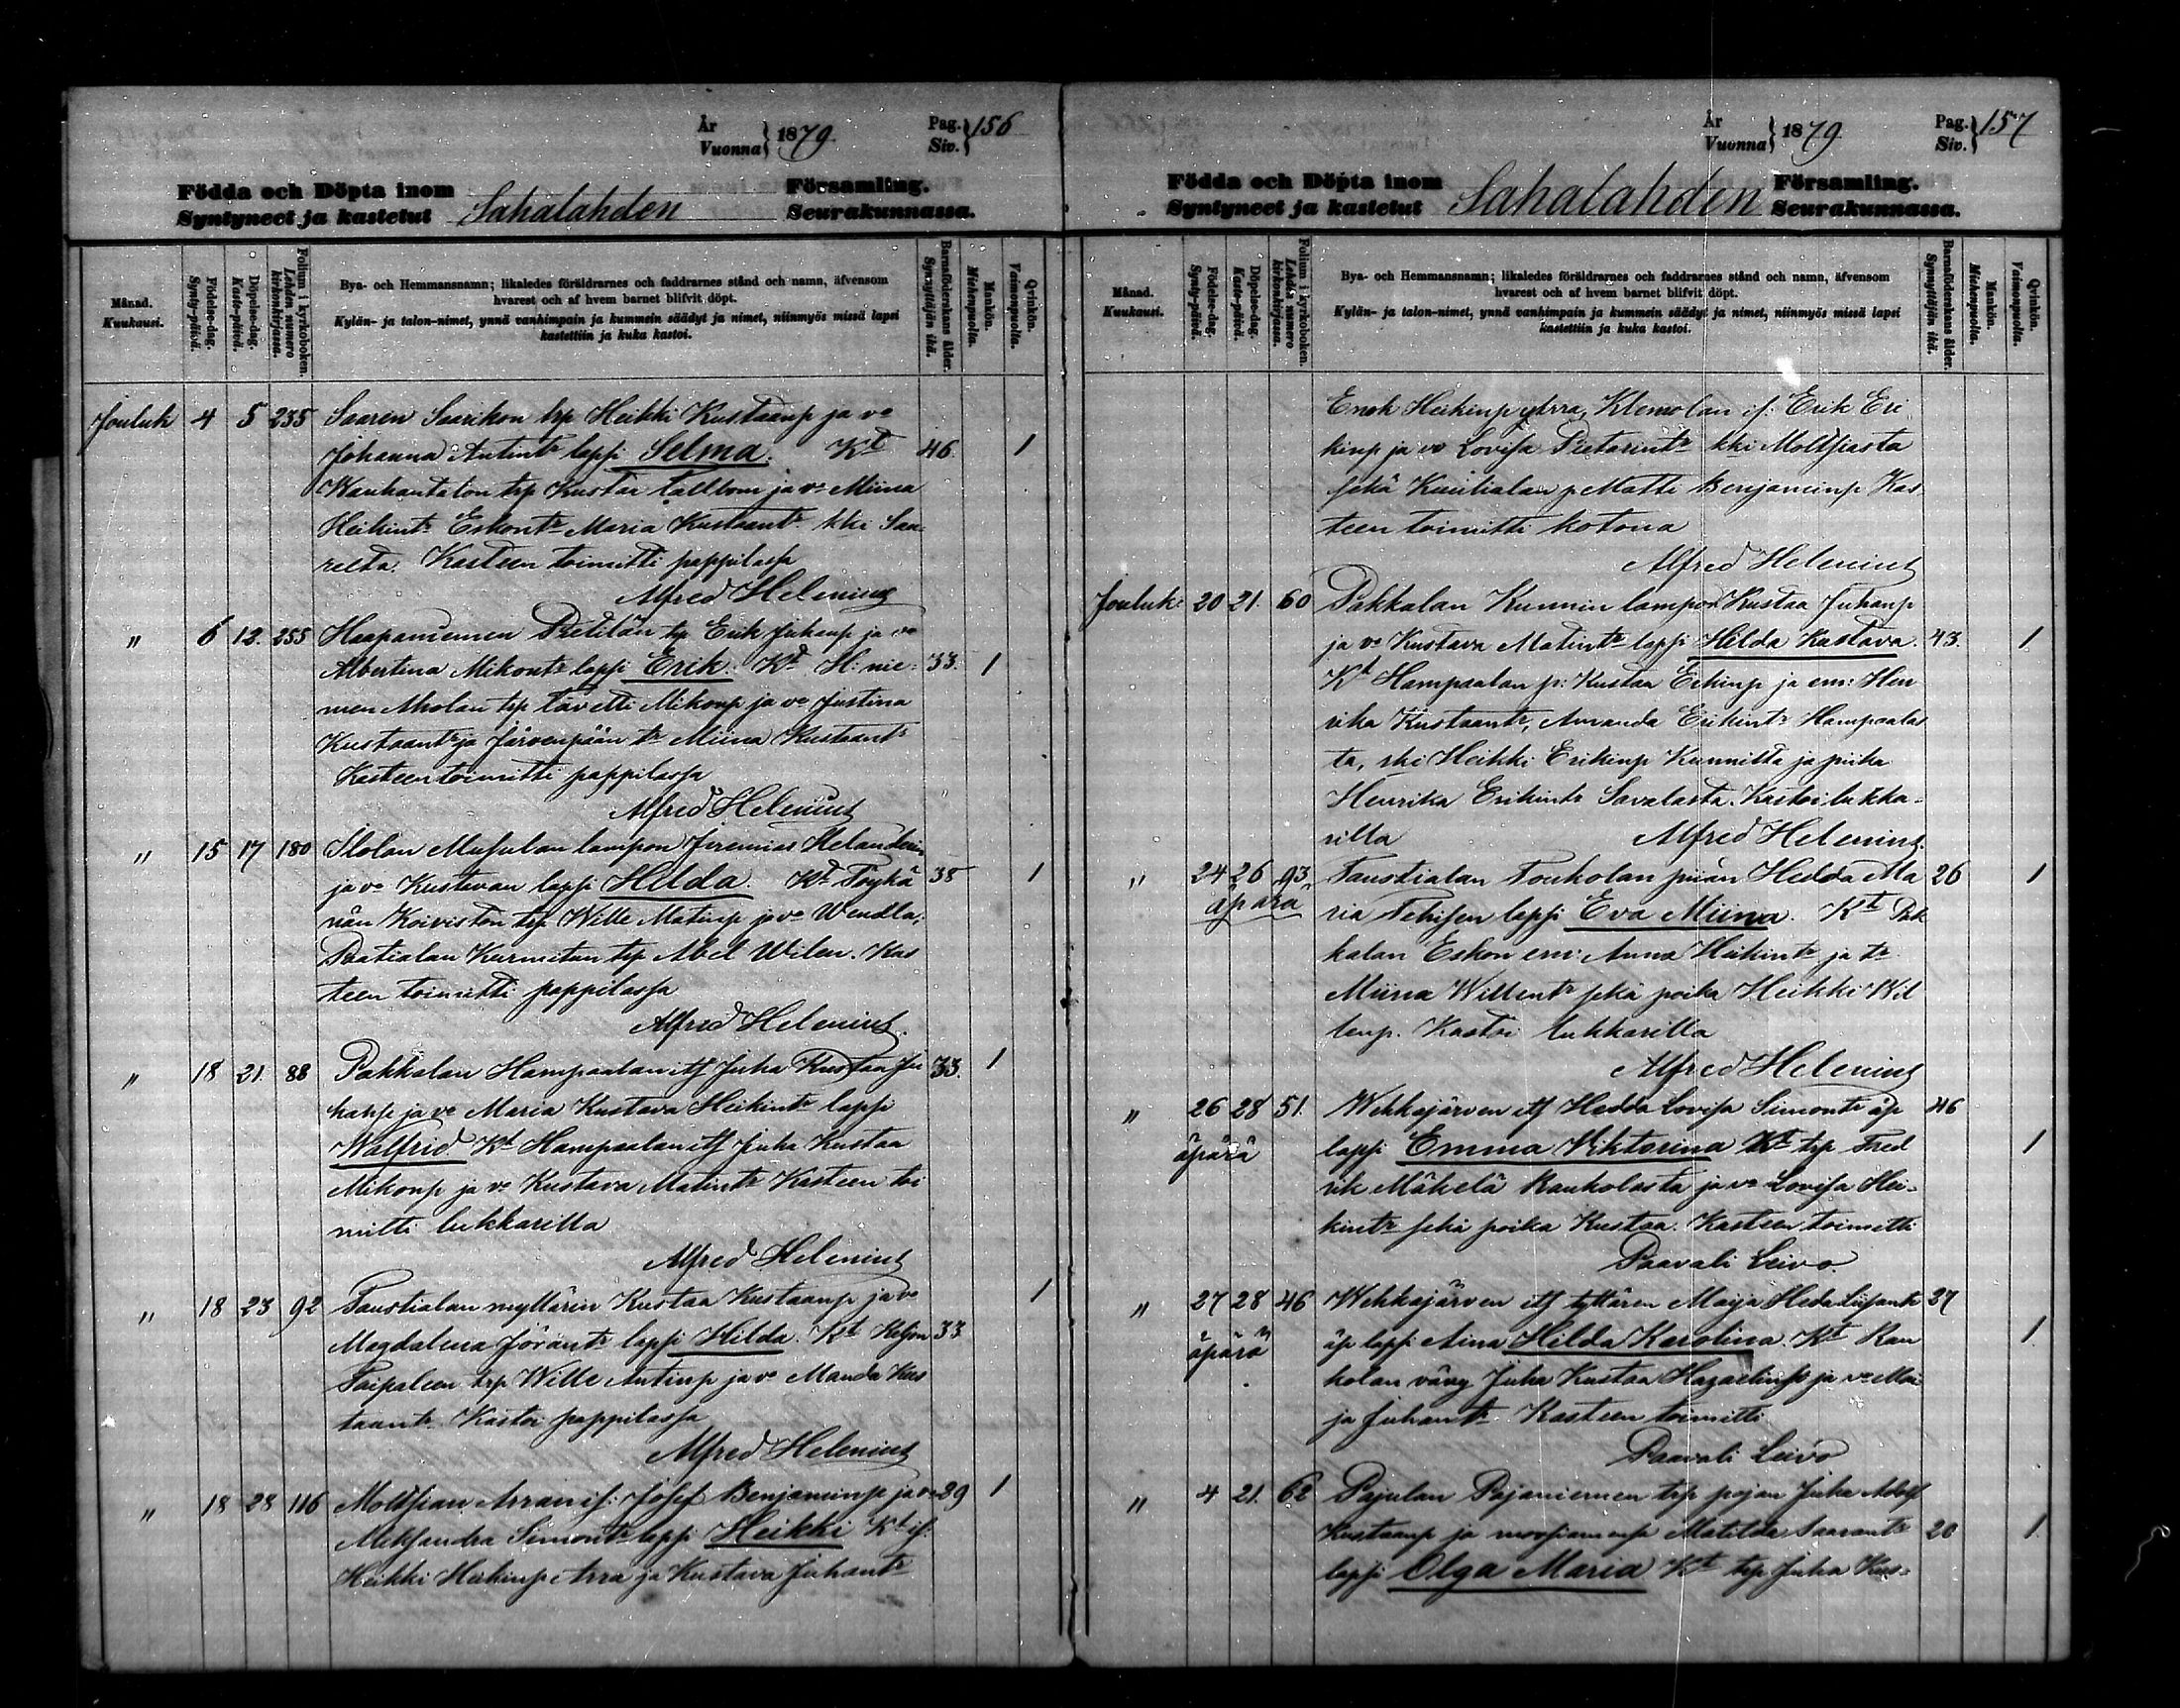 År
Vuonna } 1879.
Pag.
Siv. } 156
Födda och Döpta inom Församling.
Syntyneet ja kastetut Sahalahden Seurakunnassa.
Månad.
Kuukausi.
Födelse-dag.
Synty-päivä.
Döpelse-dag.
Kaste-päivä.
Folium i kyrkoboken.
Lehden numero kirkonkirjassa.
Bya- och Hemmansnamn; likaledes föräldrarnes och faddrarnes stånd och namn, äfvensom
hvarest och af hvem barnet blifvit döpt.
Kylän- ja talon-nimet, ynnä vanhimpain ja kummein säädyt ja nimet, niinmyös missä lapsi
kastettiin ja kuka kastoi.
Barnaföderskans ålder.
Synnyttäjän ikä.
Mankön.
Miehenpuolta.
Qvinkön.
Vaimonpuolta.
Jouluk 4 5 235 Saaren Saarikon trp Heikki Kustaanp ja vo
Johanna Antintr lapsi Selma. Kt 46. 1
Wanhantalon trp Kustaa Tallbom ja vo Miina
Heikintr Eskontr Maria Kustaantr kki Saa-
relta. Kasteen toimitti pappilassa
Alfred Helenius
" 6 12. 255 Haapaniemen Prelitän trp Erik Juhanp ja vo
Albertina Mikontr lapsi Erik. Kt H: nie- 33. 1
men Aholan trp Taavetti Mikonp ja vo Justina
Kustaantr ja Järvenpään tr Miina Kustaantr
Kasteen toimitti pappilassa
Alfred Helenius
" 15 17 180 Ilolan lampon Jeremias Helanderin
ja vo Kustavan lapsi Hilda. Kt Töykä 38 1
nän Koiviston trp Wille Matinp ja vo Wendla,
Pratialan trp Abel Wilen. Kas
teen toimitti pappilassa
Alfred Helenius.
" 18 21. 88 Pakkalan Hampaalan itf Juha Kustaa Ju 33. 1
hanp ja vo Maria Kustava Heikintr lapsi
Walfrid Kt Hampaalan itf Juha Kustaa
Mikonp ja vo Kustava Matintr Kasteen toi
mitti lukkarilla
Alfred Helenius
" 18 23 92 Taustialan myllärin Kustaa Kustaanp ja vo 1
Magdalena Jöräntr lapsi Hilda. Kt Keljon 33
Taipaleen trp Wille Antinp ja vo Manda Kus
taantr. Kastoi pappilassa
Alfred Helenius
" 18 28 116 Moltsian Arran if: Josef Benjaminp ja vo 29 1
Aleksandra Simontr lapsi Heikki Kt if:
Heikki Heikinp Arra ja Kustava Juhantr
År
Vuonna } 1879.
Pag.
Siv. } 157
Födda och Döpta inom Församling.
Syntyneet ja kastetut Sahalahden Seurakunnassa.
Månad.
Kuukausi.
Födelse-dag.
Synty-päivä.
Döpelse-dag.
Kaste-päivä.
Folium i kyrkoboken.
Lehden numero kirkonkirjassa.
Bya- och Hemmansnamn; likaledes föräldrarnes och faddrarnes stånd och namn, äfvensom
hvarest och af hvem barnet blifvit döpt.
Kylän- ja talon-nimet, ynnä vanhimpain ja kummein säädyt ja nimet, niinmyös missä lapsi
kastettiin ja kuka kastoi.
Barnaföderskans ålder.
Synnyttäjän ikä.
Mankön.
Miehenpuolta.
Qvinkön.
Vaimonpuolta.
Enok Heikinp Klemolan if: Erik Eri
kinp ja vo Lovisa Pietarintr kki Moltsiasta
sekä p. Matti Benjaminp Kas
teen toimitti kotona
Alfred Helenius
Jouluk: 20 21. 60 Pakkalan Kunnin lampon Kustaa Juhanp
ja vo Kustava Matintr lapsi Hilda Kustava. 43. 1
Kt Hampaalan p: Kustaa Erkinp ja em: Hen
rika Kustaantr, Amanda Erikintr Hampaalas
ta, rki Heikki Erikinp Kunnilta ja piika
Henrika Erikintr Savalasta. Kastoi lukka-
rilla Alfred Helenius.
" 24 26 93 Taustialan Toukolan piian Hedda Ma 26 1
äpärä ria lapsi Eva Miina. Kt Pak
kalan Eskon em: Anna Heikintr ja tr
Miina Willentr sekä poika Heikki Wil
lenp. Kastoi lukkarilla
Alfred Helenius
" 26 28 51. Wehkajärven itf Hedda Lovisa Simontr äp 46
äpärä lapsi Emma Viktorina Kt trp Fred
1
rik Mäkelä Raukolasta ja vo Lovisa Hei-
kintr sekä poika Kustaa. Kasteen toimitti
Paavali Leivo.
" 27 28 46 Wehkajärven itf tyttären Maija Heda Liisantr 27
äpärä äp lapsi Aina Hilda Karolina. Kt Rau 1
kolan vävy Juha Kustaa ja vo Mai
ja Juhantr Kasteen toimitti
Paavali Leivo
" 4 21. 62 Pajulan Pajaniemen trp pojan Juha Adolf
Kustaanp ja Matilda 20 1
lapsi Olga Maria Kt trp Juha Kus-